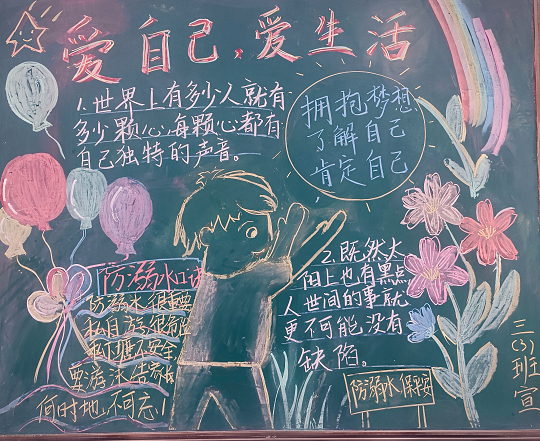 爱自己,爱生活
1.世界上有多少人就有
多少颗心,每颗心都有
自己独特的声音。
拥抱梦想
了解自己
肯定自己
2.既然太
阳上也有黑点
人世间的事就
更不可能没有
缺陷。
防溺水口诀
防溺水很重要
私自游很危险
安全
要游泳
何时地,不可忘!
防溺水保平安
三(3)班宣